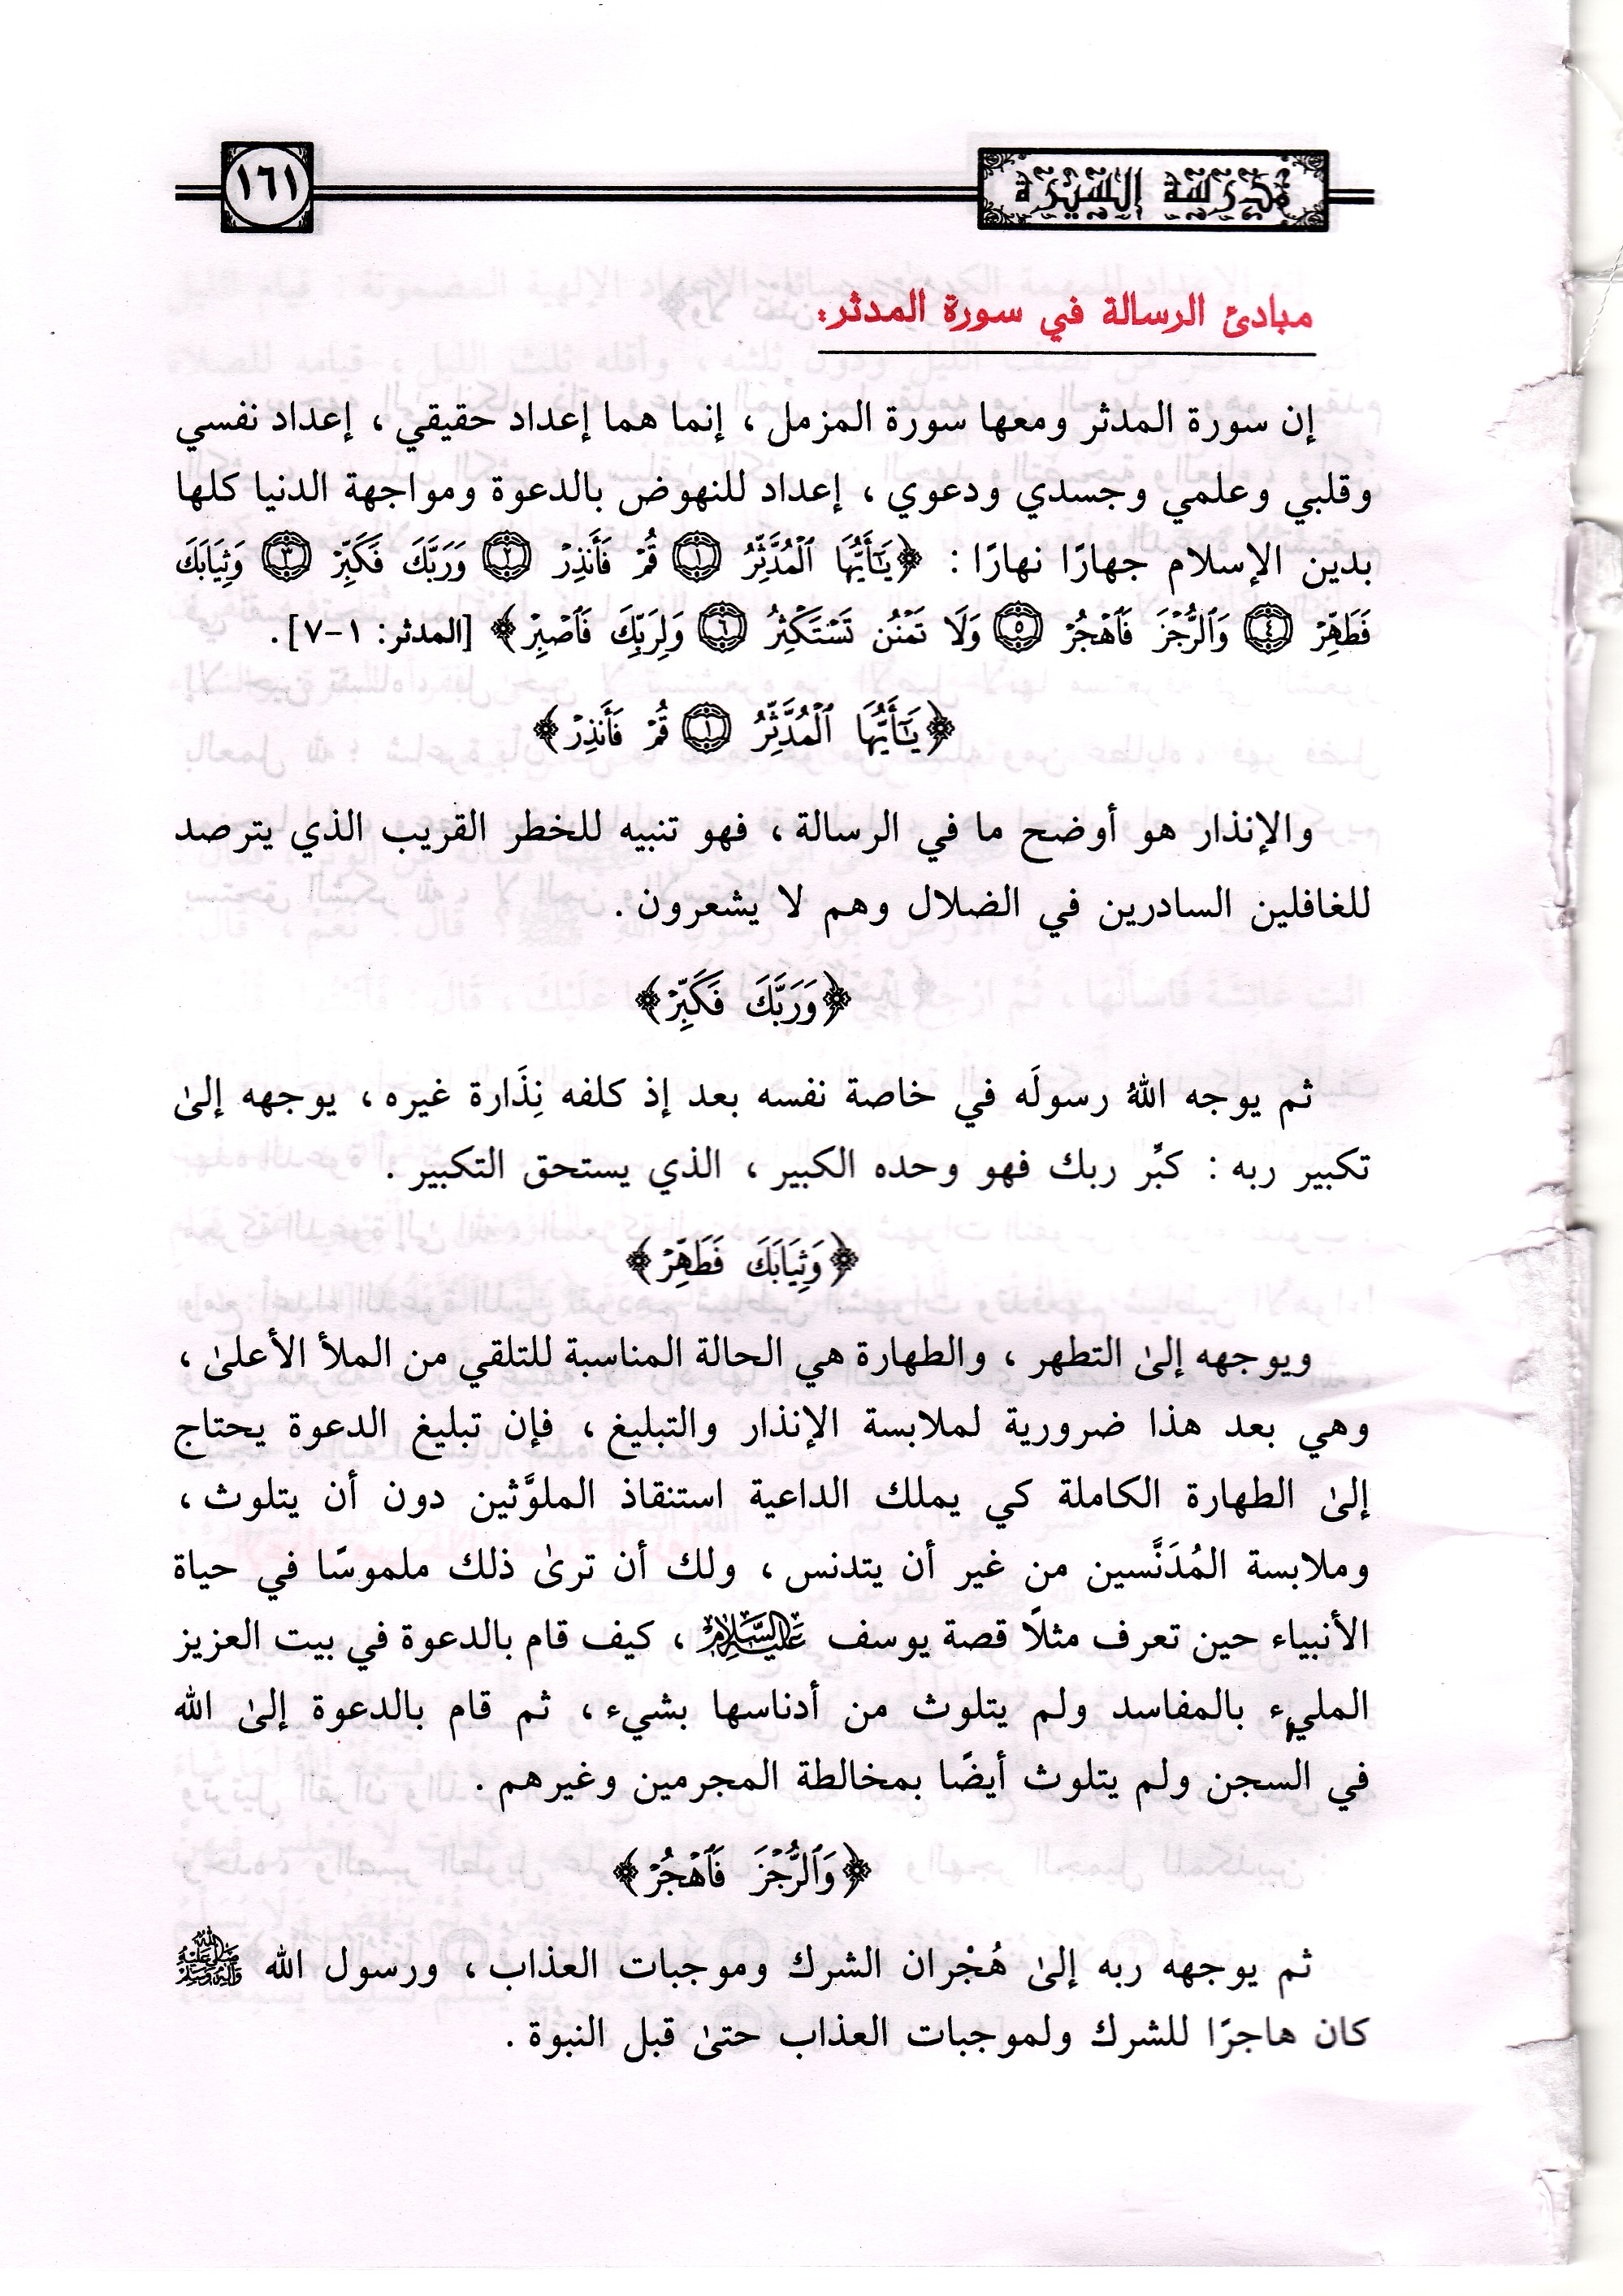 مدرسة السيرة
١٦١
مبادئ الرسالة في سورة المدثر:
إن سورة المدثر ومعها سورة المزمل ، إنما هما إعداد حقيقي ، إعداد نفسي
وقلبي وعلمي وجسدي ودعوي ، إعداد للنهوض بالدعوة ومواجهة الدنيا كلها
بدين الإسلام جهارًا نهارًا : ﴿يَٰٓأَيُّهَا ٱلۡمُدَّثِّرُ ١ قُمۡ فَأَنذِرۡ ٢ وَرَبَّكَ فَكَبِّرۡ ٣ وَثِيَابَكَ
فَطَهِّرۡ ٤ وَٱلرُّجۡزَ فَٱهۡجُرۡ ٥ وَلَا تَمۡنُن تَسۡتَكۡثِرُ ٦ وَلِرَبِّكَ فَٱصۡبِرۡ﴾ [المدثر: ١-٧].
﴿يَٰٓأَيُّهَا ٱلۡمُدَّثِّرُ ١ قُمۡ فَأَنذِرۡ﴾
والإنذار هو أوضح ما في الرسالة ، فهو تنبيه للخطر القريب الذي يترصد
للغافلين السادرين في الضلال وهم لا يشعرون .
﴿وَرَبَّكَ فَكَبِّرۡ﴾
ثم يوجه اللهُ رسولَه في خاصة نفسه بعد إذ كلفه نِذَارة غيره ، يوجهه إلىٰ
تكبير ربه : كبِّر ربك فهو وحده الكبير ، الذي يستحق التكبير .
﴿وَثِيَابَكَ فَطَهِّرۡ﴾
ويوجهه إلىٰ التطهر ، والطهارة هي الحالة المناسبة للتلقي من الملأ الأعلىٰ ،
وهي بعد هذا ضرورية لملابسة الإنذار والتبليغ ، فإن تبليغ الدعوة يحتاج
إلىٰ الطهارة الكاملة كي يملك الداعية استنقاذ الملوَّثين دون أن يتلوث ،
وملابسة المُدَنَّسين من غير أن يتدنس ، ولك أن ترىٰ ذلك ملموسًا في حياة
الأنبياء حين تعرف مثلاً قصة يوسف عليه السلام ، كيف قام بالدعوة في بيت العزيز
المليء بالمفاسد ولم يتلوث من أدناسها بشيء ، ثم قام بالدعوة إلىٰ الله
في السجن ولم يتلوث أيضًا بمخالطة المجرمين وغيرهم .
﴿وَٱلرُّجۡزَ فَٱهۡجُرۡ﴾
ثم يوجهه ربه إلىٰ هُجْران الشرك وموجبات العذاب ، ورسول الله صلى الله عليه وآله وسلم
كان هاجرًا للشرك ولموجبات العذاب حتىٰ قبل النبوة .